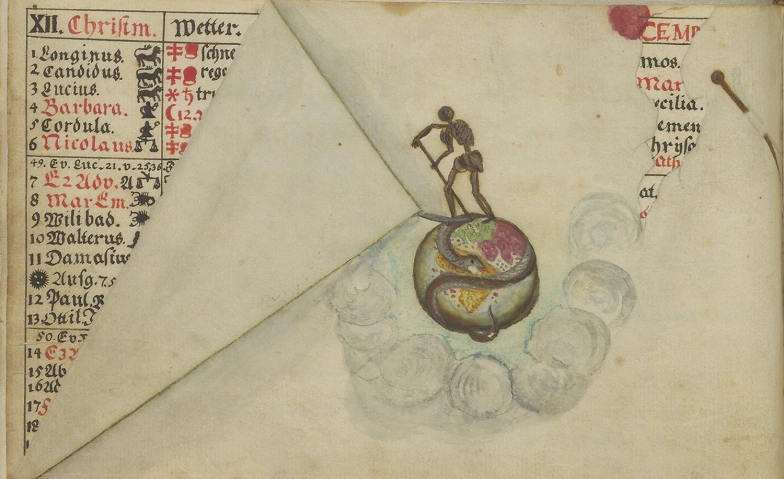 XII. Christm. Wetter.
1 Longinus. schne
2 Candidus. rege
3 Lucius. tr
4 Barbara. (12.
5 Cordula.
6 Nicolaus
49. Ev. Luc. 21. v. 25.36.
7 E 2 Adv.
8 Mar Em.
9 Wilibad.
10 Walterus.
11 Damasius
Aufg. 7.5
12 Paul.
13 Ottil.
50. Ev.
14 E 3
15 Ab
16 Ad
17
18
CEMB
mos.
Mar
ecilia.
emen
hryso
ath
at.